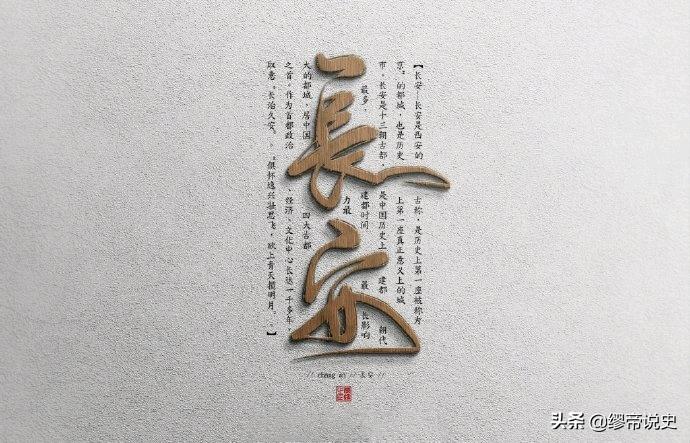 長安
【长安—长安是西安的 古称,是历史上第一座被称为
京”的都城,也是历史 上第一座真正意义上的城
市。长安是十三朝古都, 是中国历史上 建都 朝代
最多, 建都时间 最 长影响
力最
大的都城,居中国 四大古都
之首。作为首都政治 、经济、文化中心长达一千多年,
取意“长治久安”。“俱怀逸兴壮思飞,欲上青天揽明月。】
// chang an // 长安
头条 @缪帝说史